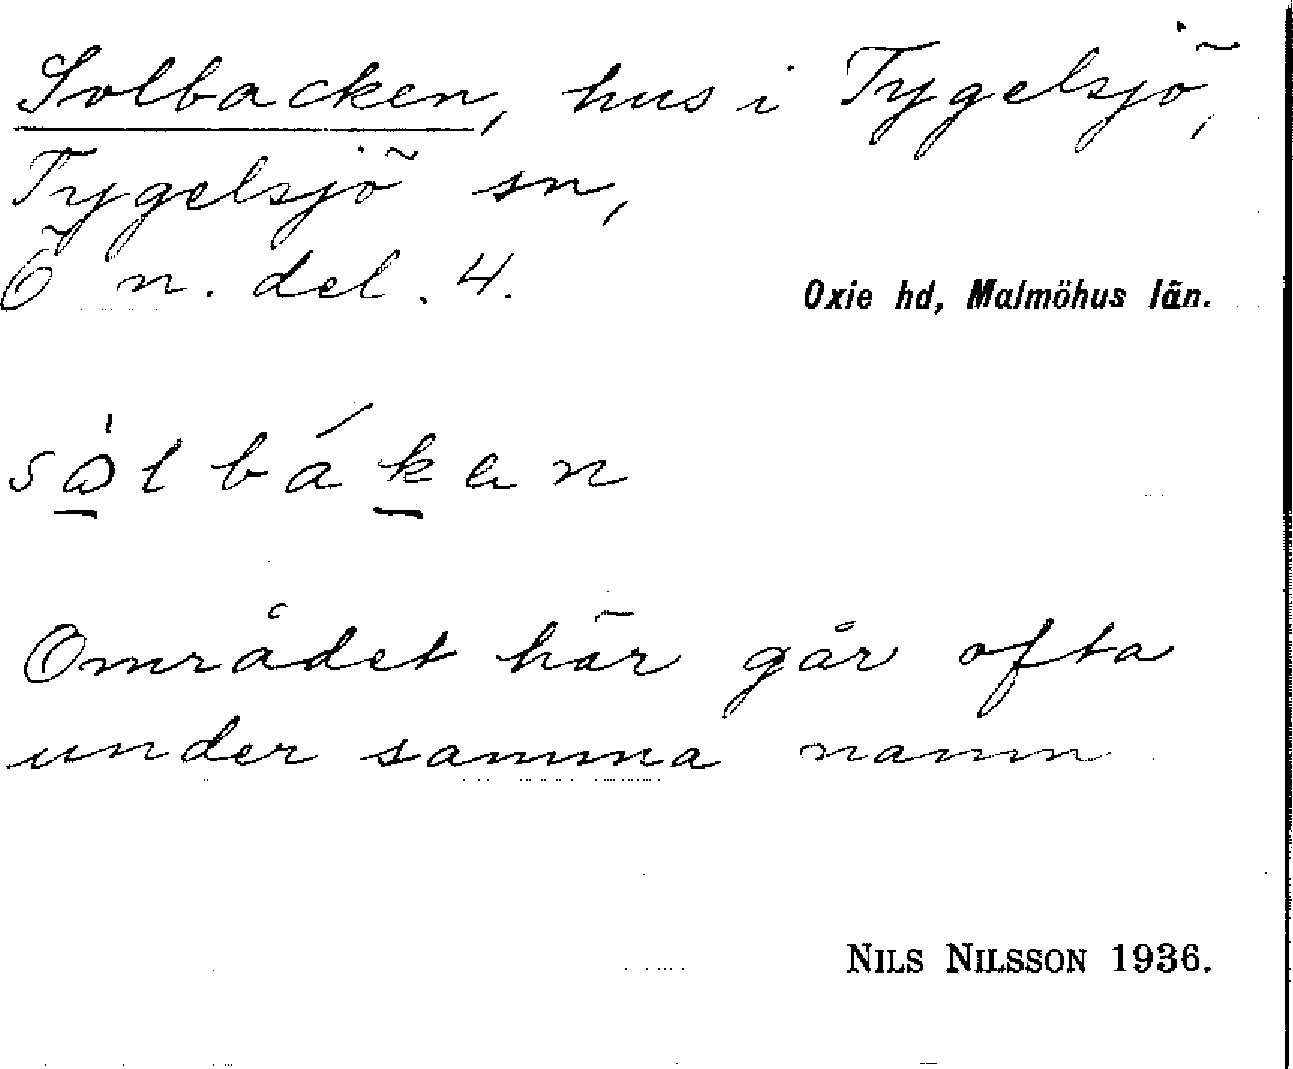 Solbacken, hus i Tygelsjö,
Tygelsjö sn,
Ö n. del. 4.
Oxie hd, Malmöhus län.
Området här går ofta
under samma namn
NILS NILSSON 1936.